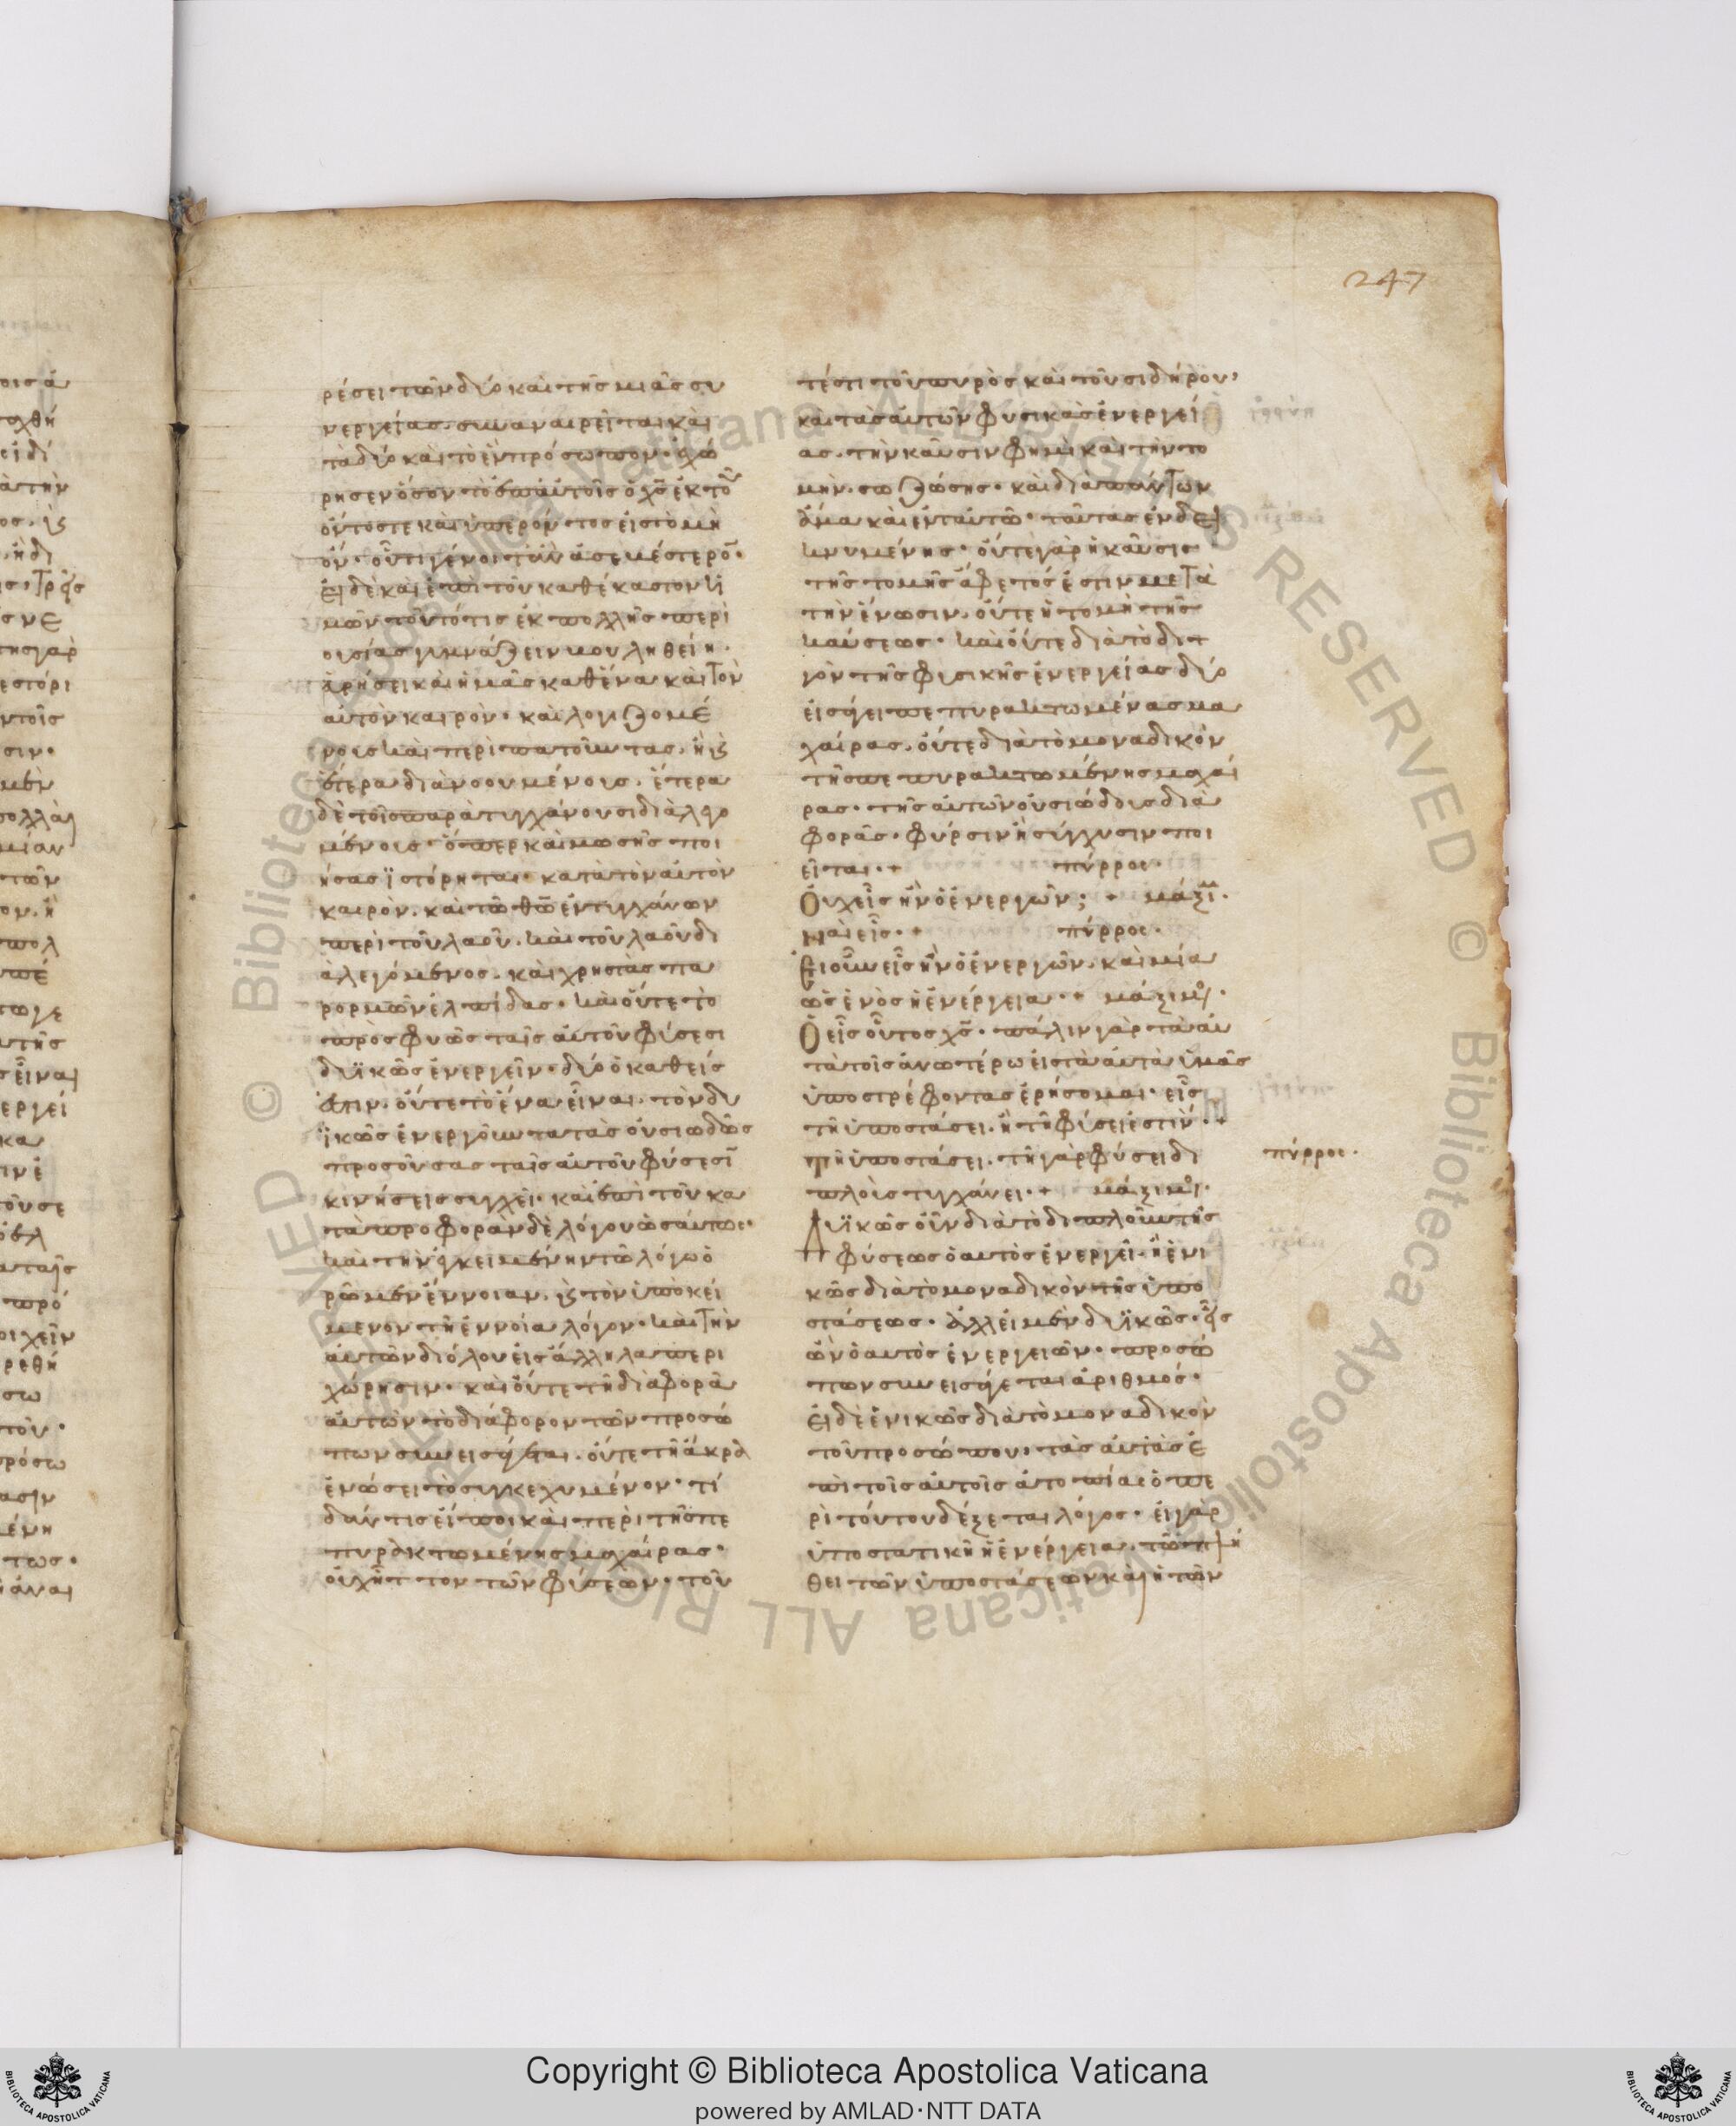 247
ρέσει τῶν δύο καὶ τῆς μιᾶς συ
νεργείας. συναναιρεῖται καὶ
τὰ δύο καὶ τὸ ἓν πρόσωπον. ἐχώ
ρησεν ὅσον τὸ ἐπ αὐτοῖς ὁ χς ἐκ τοῦ
ὄντος τε καὶ ὑπερόντος εἰς τὸ μὴ
ὄν. οὗ τι γένοιτ ἂν ἀσεμέστερον.
εἰ δὲ καὶ ἐπὶ τοῦ καθέκαστον ἡ
μῶν τουτό τις ἐκ πολλῆς περι
ουσίας γυμνάζειν βουληθείη.
εὑρήσει καὶ ἡμᾶς καθένα καὶ τὸν
αὐτὸν καιρὸν. καὶ λογιζομέ
νους καὶ περιπατοῦντας. ἢ καὶ
ἕτερα διανοουμένους. ἕτερα
δὲ τοῖς παρατυγχάνουσι διαλεγο
μένους. ὅπερ καὶ μωσῆς ποι
ήσας ἱστόρηται. κατὰ τὸν αὐτὸν
καιρὸν. καὶ τῶ θῶ ἐντυγχάνων
περὶ τοῦ λαοῦ. καὶ τοῦ λαοῦ δι
αλεγόμενος. καὶ χρηστὰς πα
ρορμῶν ἐλπίδας. καὶ οὔτε τὸ
προσφυῶς ταῖς αὐτοῦ φύσεσι
δυϊκῶς ἐνεργεῖν. δύο ὁ καθείς
ἐστιν. οὔτε τὸ ἕνα εἶναι. τὸν δυ
ϊκῶς ἐνεργοῦντα τὰς οὐσιωδῶς
προσούσας ταῖς αὐτοῦ φύσεσι
κινήσεις συγχεῖ. καὶ ἐπὶ τοῦ κα
τὰ προφορὰν δὲ λόγου ὡσαύτως.
καὶ τὴν ἐγκειμένην τῶ λόγω ὁ
ρῶμεν ἔννοιαν. καὶ τὸν ὑποκεί
μενον τῇ ἐννοία λόγον. καὶ τὴν
αὐτῶν διόλου εἰς ἄλληλα περι
χώρησιν. καὶ οὔτε τῇ διαφορᾶ
αὐτῶν τὸ διάφορον τῶν προσώ
πων συνεισάγεται. οὔτε τῇ ἄκρα
ἑνώσει τὸ συγκεχυμένον. τί
δ ἄν τις εἴποι καὶ περὶ τῆς πε
πυρακτωμένης μαχαίρας.
οὐχ ἧττον τῶν φύσεων. τοῦ
τέστι τοῦ πυρὸς καὶ τοῦ σιδήρου,
καὶ τὰς αὐτῶν φυσικὰς ἐνεργεί
ας. τὴν καῦσιν φημὶ καὶ τὴν το
μὴν. σωζώσης. καὶ διὰ πάντων
ἅμα καὶ ἐν ταυτῶ. ταύτας ἐνδει
κνυμένης. οὔτε γὰρ ἡ καῦσις
τῆς τομῆς ἄφετός ἐστιν μετὰ
τὴν ἕνωσιν. οὔτε ἡ τομὴ τῆς
καύσεως. καὶ οὔτε διὰ τὸ διτ
τὸν τῆς φυσικῆς ἐνεργείας δύο
εἰσάγει πεπυρακτωμένας μα
χαίρας. οὔτε διὰ τὸ μοναδικὸν
τῆς πεπυρακτωμένης μαχαί
ρας. τῆς αὐτῶν οὐσιώδους δια
φορᾶς. φύρσιν ἢ σύγχυσιν ποι
εῖται. + πύρρος.
Οὐχ εἷς ἦν ὁ ἐνεργῶν; + μάξιμ.
Ναὶ εἷς. + πύρρος.
Εἰ οὖν εἷς ἦν ὁ ἐνεργῶν. καὶ μία
ὡς ἑνὸς ἡ ἐνέργεια. + μάξιμο.
Ὁ εἷς οὗτος χς. πάλιν γὰρ τὰ αὐ
τὰ τοῖς ἀνωτέρω εἰς τὰ αὐτὰ ὑμᾶς
ὑποστρέφοντας ἐρήσομαι. εἷς
τῇ ὑποστάσει. ἢ τῇ φύσει ἐστίν. +
πύρρος.
Τῇ ὑποστάσει. τῇ γὰρ φύσει δι
πλοῦς τυγχάνει. + μάξιμο.
Δυϊκῶς οὖν διὰ τὸ διπλοῦν τῆς
φύσεως ὁ αὐτὸς ἐνεργεῖ. ἢ ἑνι
κῶς διὰ τὸ μοναδικὸν τῆς ὑπο
στάσεως. ἀλλ εἰ μὲν δυϊκῶς. εἷς
ὢν ὁ αὐτὸς ἐνεργειῶν. προσώ
πων συνεισάγεται ἀριθμός.
εἰ δὲ ἑνικῶς διὰ τὸ μοναδικὸν
τοῦ προσώπου, τὰς αὐτὰς ἐ
πὶ τοῖς αὐτοῖς ἀτοπίας ὁ πε
ρὶ τούτου δέξεται λόγος. εἰ γὰρ
ὑποστατικὴ ἡ ἐνέργεια. τῶ πλή
θει τῶν ὑποστάσεων καὶ ἡ τῶν
Copyright © Biblioteca Apostolica Vaticana
powered by AMLAD·NTT DATA